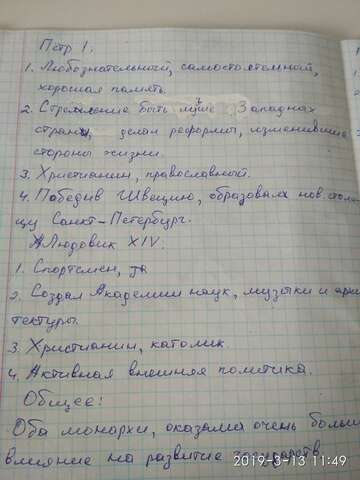 Пётр 1.
1. Любознательный, самостоятельный,
хорошая память.
2. Стремление быть Западнах
стран, делал реформы, изменившие
стороны жизни.
3. Христианин, православный.
4. Победив Швецию, образовал нов. столи-
цу Санкт-Петербург.
Людовик XIV.
1. Спортсмен,
2. Создал Академии наук, музыки и архи
тектуры.
3. Христианин, католик.
4. Активная внешняя политика.
Общее:
Оба монархи, оказали очень больш
влияние на развитие государств
2019-3-13 11:49